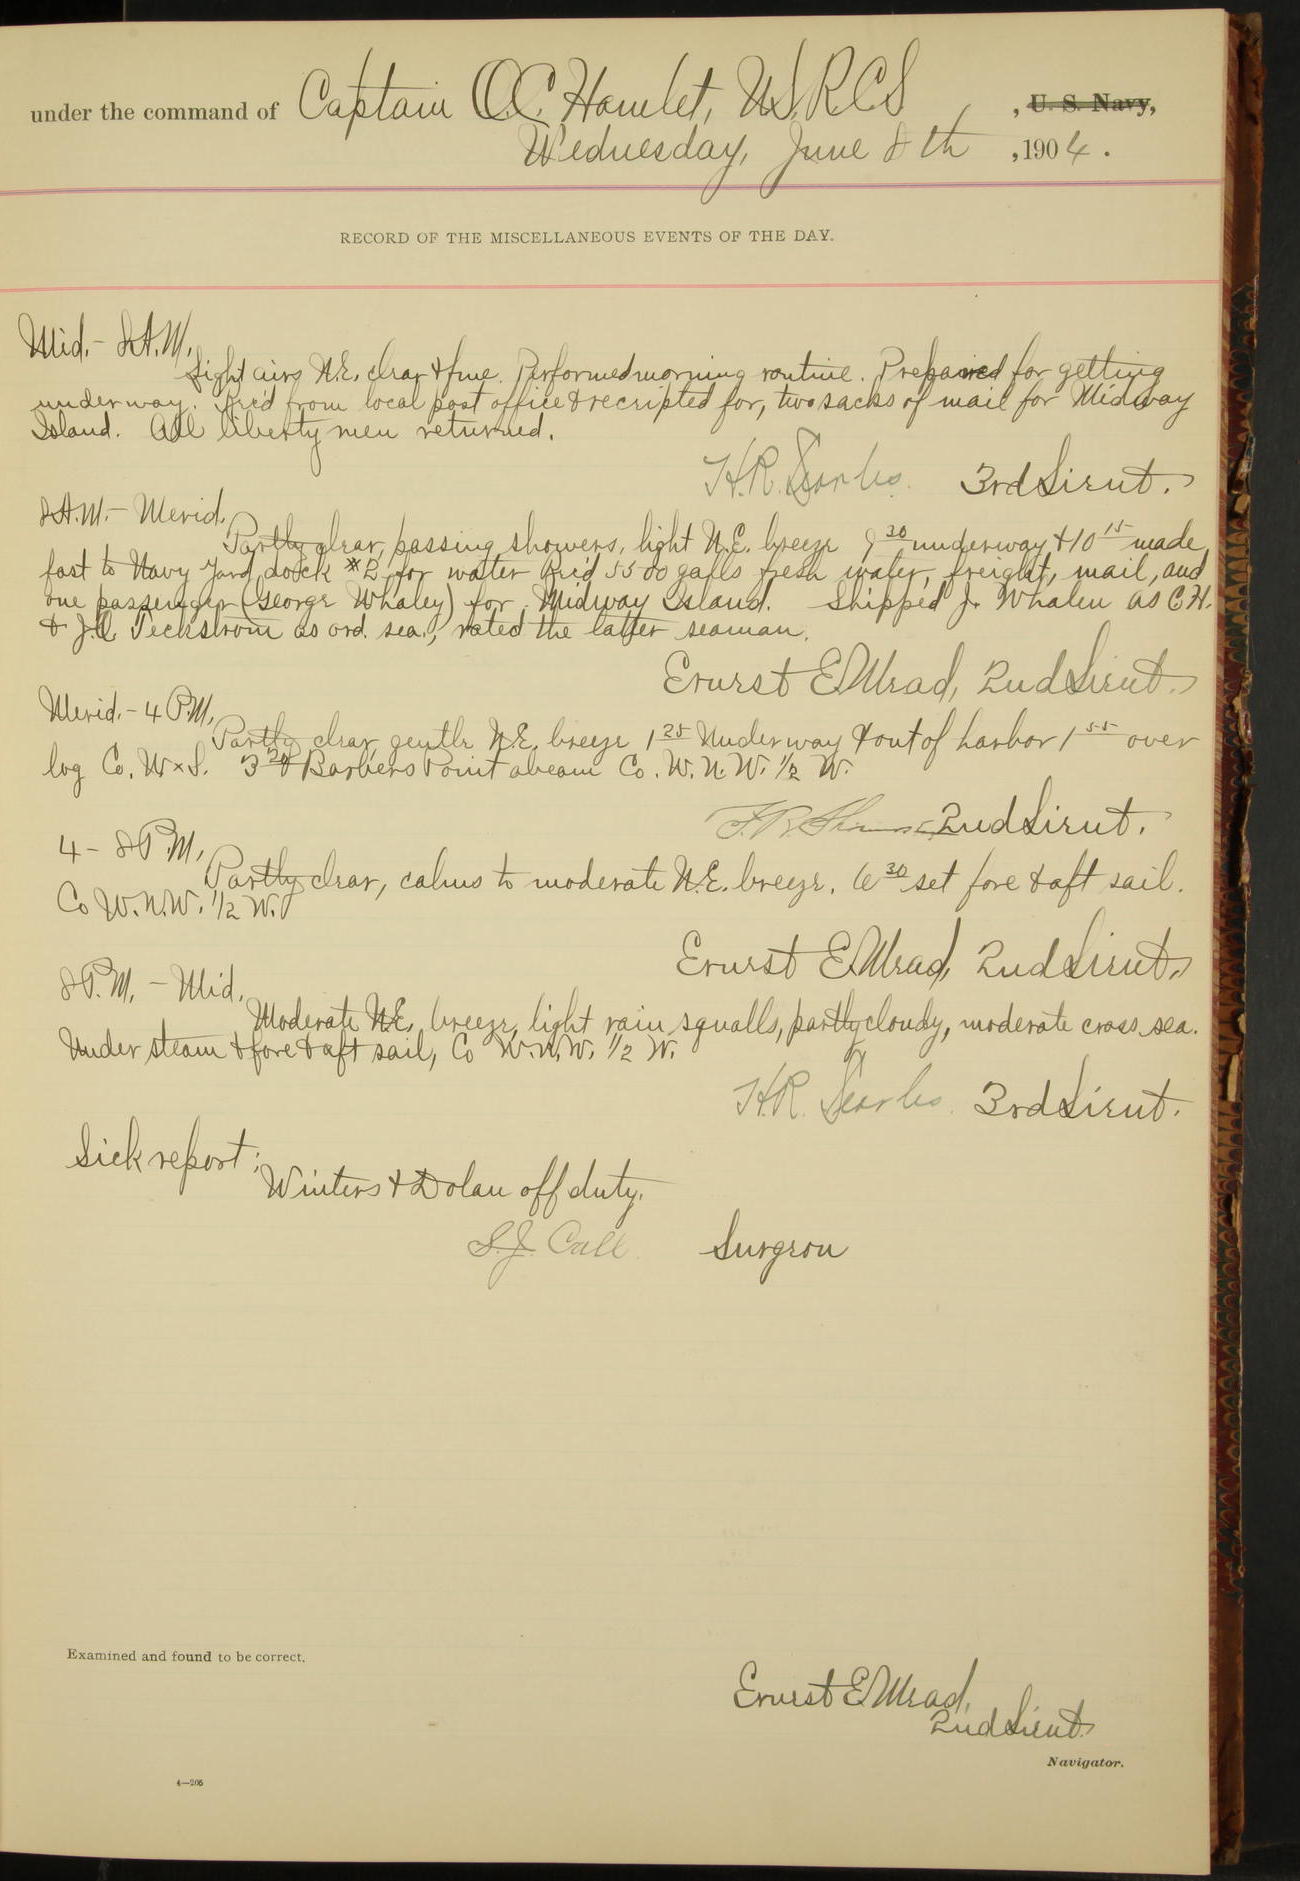 under the command of Captain O.C. Hamlet, U.S.R.C.S , U. S. Navy,
Wednesday, June 8th , 1904.
RECORD OF THE MISCELLANEOUS EVENTS OF THE DAY.
Mid.- 8 A.M.
Light airs N.E. clear & fine. Performed morning routine. Prepared for getting
underway. Rec'd from local post office & receipted for, two sacks of mail for Midway
Island. All liberty men returned.
H.R. Searles. 3rd Lieut.
8 A.M.- Merid.
Partly clear, passing showers, light N.E. breeze 9 30 underway & 10 15 made
fast to Navy Yard dock #2, for water Rec'd 5500 galls fresh water, freight, mail, and
one passenger (George Whaley) for Midway Island. Shipped J. Whalen as C.H.
& J.A. Teckstrom as ord. sea., rated the latter seaman.
Ernest E. Mead, 2nd Lieut.
Merid.- 4 P.M.
Partly clear, gentle N.E. breeze 1 25 Underway & out of harbor 1 55 over
log Co. W x S. 3 20 Barbers Point abeam Co. W.N.W. 1/2 W.
2nd Lieut.
4 - 8 P.M.
Partly clear, calms to moderate N.E. breeze. 6 30 set fore & aft sail.
Co W.N.W. 1/2 W.
Ernest E. Mead, 2nd Lieut.
8 P.M. - Mid.
Moderate N.E. breeze, light rain squalls, partly cloudy, moderate cross sea.
Under steam & fore & aft sail, Co W.N.W. 1/2 W.
H.R. Searles. 3rd Lieut.
Sick report:
Winters & Dolan off duty.
S.J. Call. Surgeon
Examined and found to be correct.
Ernest E. Mead,
2nd Lieut.
Navigator.
4—205